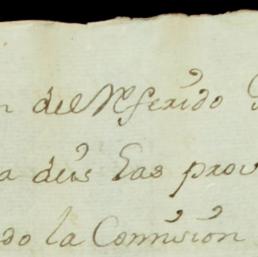 n del Referido
a deis las prov
do la Comision